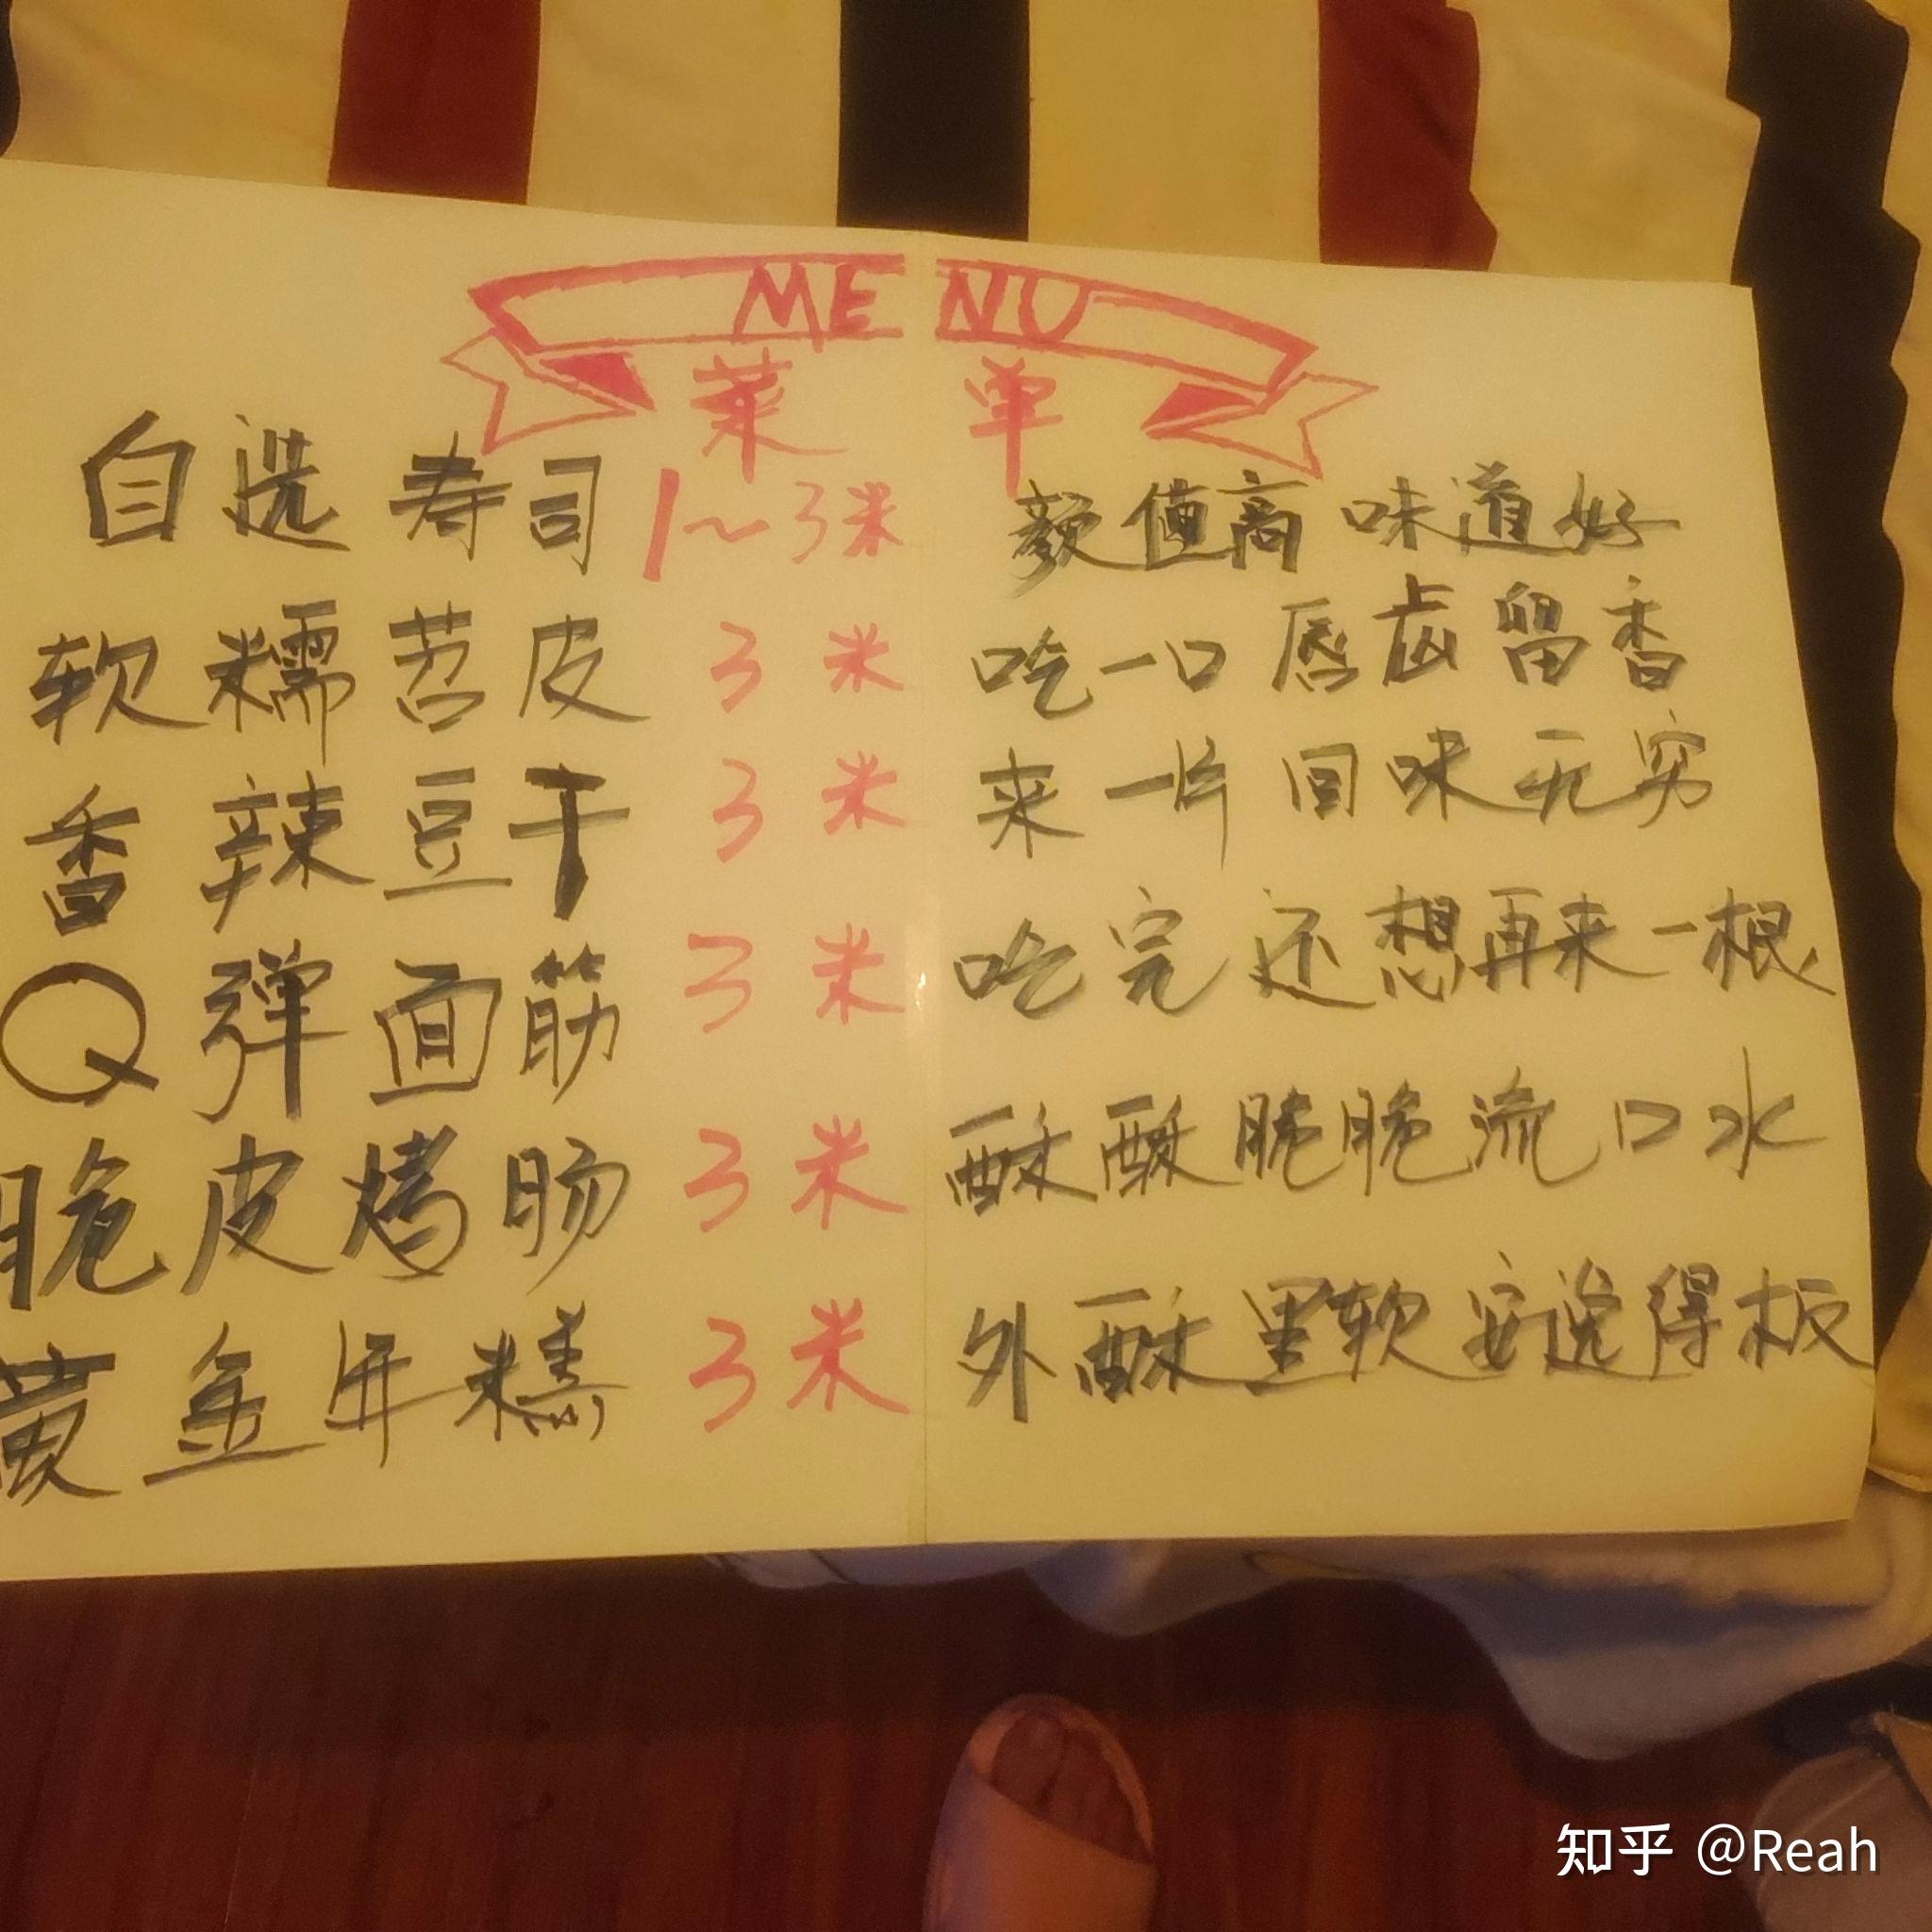 MENU
菜单
自选寿司 1~3米 颜值高味道好
软糯苕皮 3米 吃一口唇齿留香
香辣豆干 3米 来一片回味无穷
Q弹面筋 3米 吃完还想再来一根
脆皮烤肠 3米 酥酥脆脆流口水
黄金年糕 3米 外酥里软安逸得板
知乎 @Reah